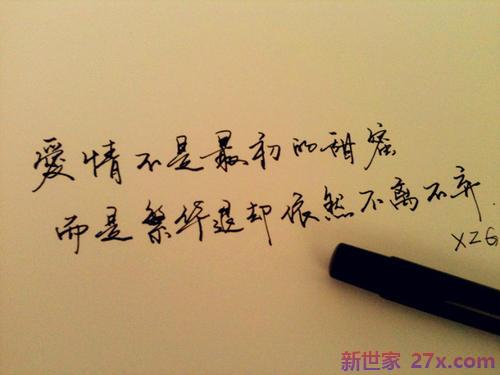 愛情不是最初的甜蜜
而是繁华退却依然不离不弃.
XZG
新世家 27x.com